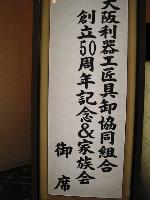 大阪利器工匠具卸協同組合
創立50周年記念&家族会
御席